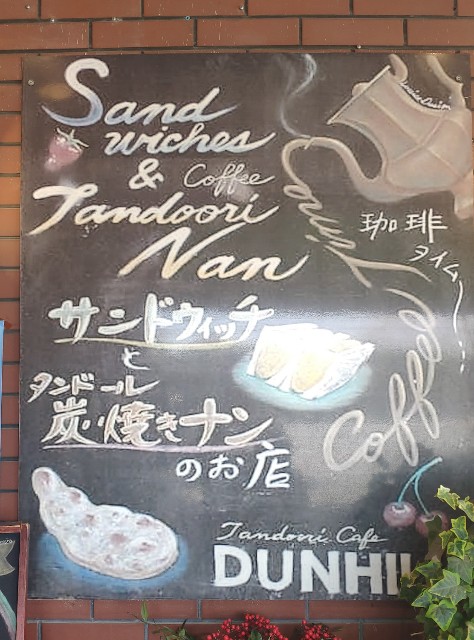 Sand
wiches
& Coffee
Tandoori
Nan
珈琲
タイム
サンドウィッチ
と
タンドール
炭焼きナン
のお店
Coffee
Tandoori Cafe
DUNHI